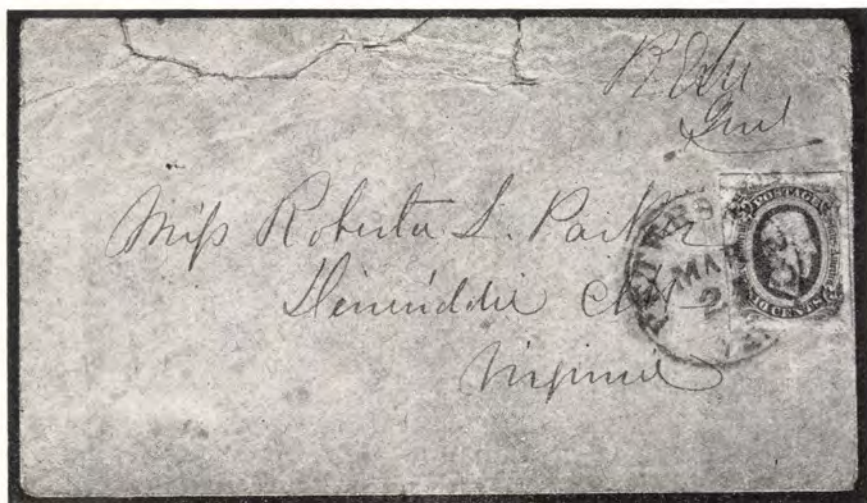 R E Lee
Genl
Miss Roberta L. Parker
Dinwiddie C.H.
Virginia
MAR
2
POSTAGE
CENTS